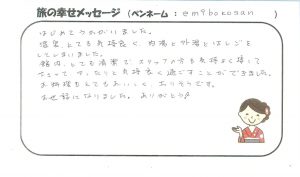 旅の幸せメッセージ（ペンネーム：emibokosan ）
はじめてうかがいました。
温泉とても気持良く 内湯と外湯とはしご
してしまいました。
館内、とても清潔で、スタッフの方も気持よく接して
下さって、すったりと気持良く過ごすことができました。
お料理もとてもおいしく
お世話になりました。 ありがとう